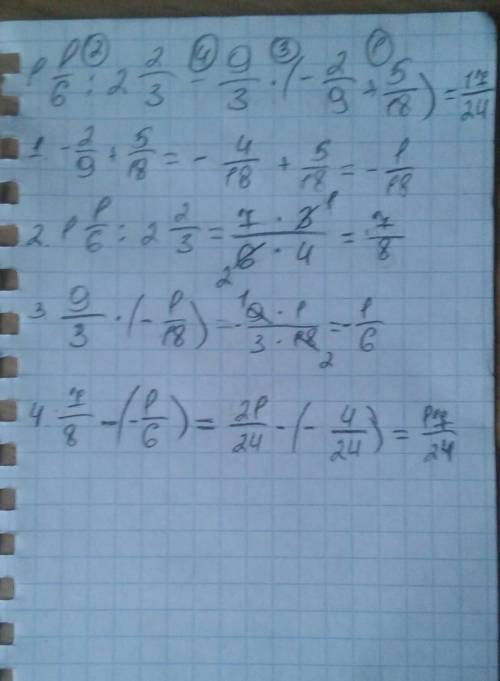 1 1/6 : 2 2/3 - 9/3 · (- 2/9 + 5/18) = 17/24
② ④ ③ ①
1 - 2/9 + 5/18 = - 4/18 + 5/18 = - 1/18
2. 1 1/6 : 2 2/3 = 7 · 3 1 / 2 6 · 4 = 7/8
3 9/3 · (- 1/18) = - 1 9 · 1 / 3 · 18 2 = - 1/6
4. 7/8 - (- 1/6) = 21/24 - (- 4/24) = 17/24